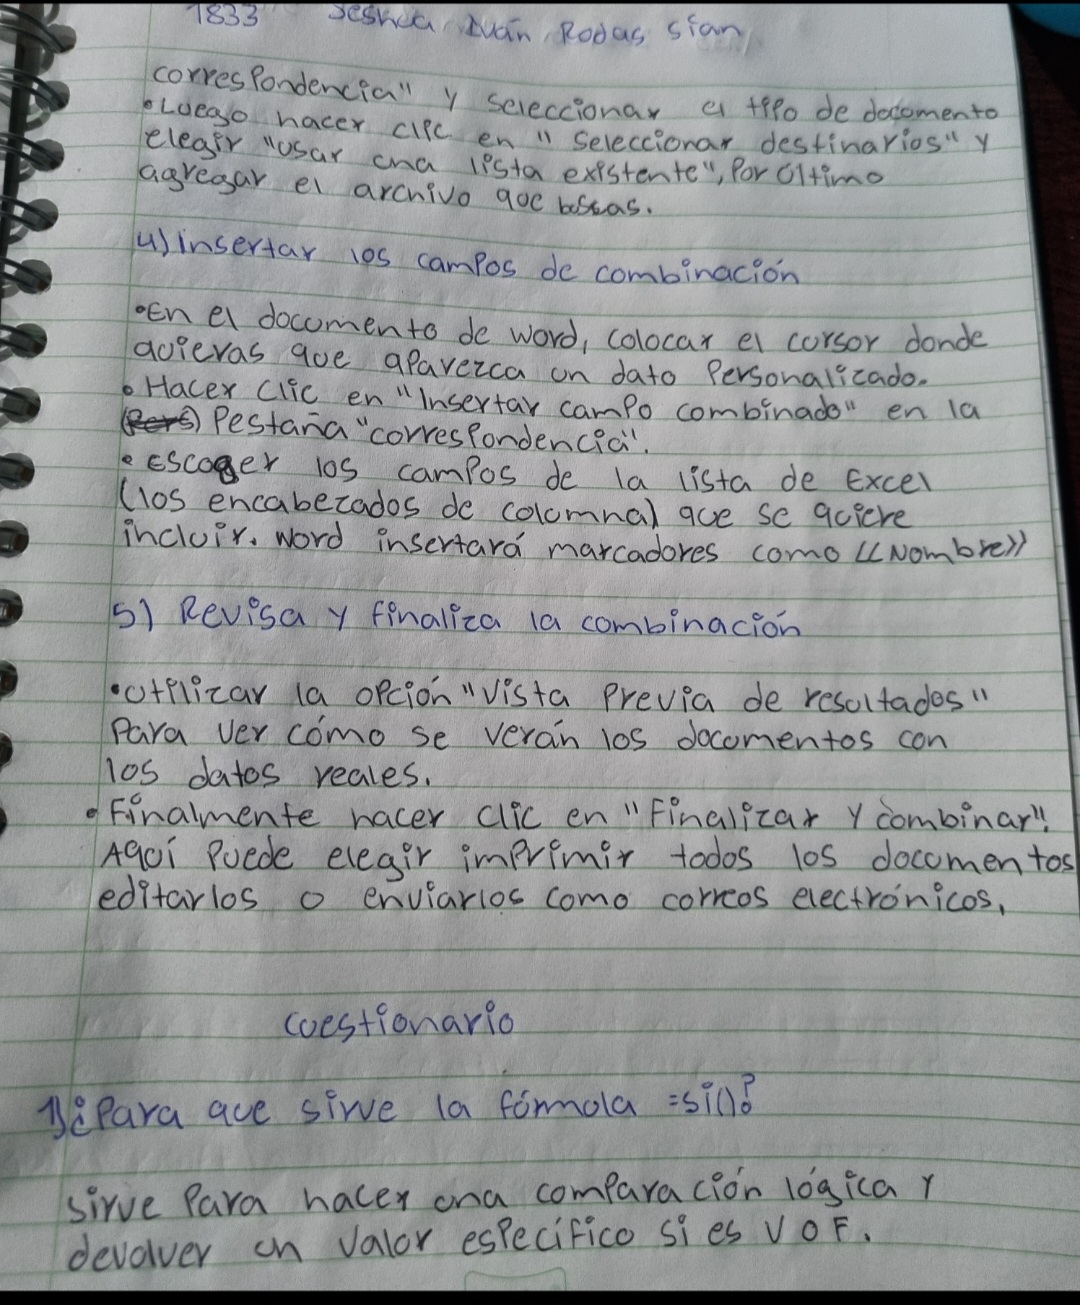 1833 Jeshua Iván Rodas Sian
correspondencia" y seleccionar el tipo de documento
• Luego hacer clic en "Seleccionar destinarios" y
elegir "usar una lista existente", Por último
agregar el archivo que buscas.
4) insertar los campos de combinación
• En el documento de word, colocar el cursor donde
quieras que aparezca un dato Personalizado.
• Hacer clic en "Insertar campo combinado" en la
Pestaña "correspondencia".
• Escoger los campos de la lista de Excel
(los encabezados de columna) que se quiere
incluir. Word insertará marcadores como <<Nombre>>
5) Revisa y finaliza la combinación
• Utilizar la opción "Vista Previa de resultados"
Para ver cómo se verán los documentos con
los datos reales.
• Finalmente hacer clic en "Finalizar y combinar".
Aquí Puede elegir imprimir todos los documentos
editarlos o enviarlos como correos electrónicos,
Cuestionario
1) ¿Para que sirve la fórmula =si()?
Sirve Para hacer una comparación lógica y
devolver un valor específico si es V o F.